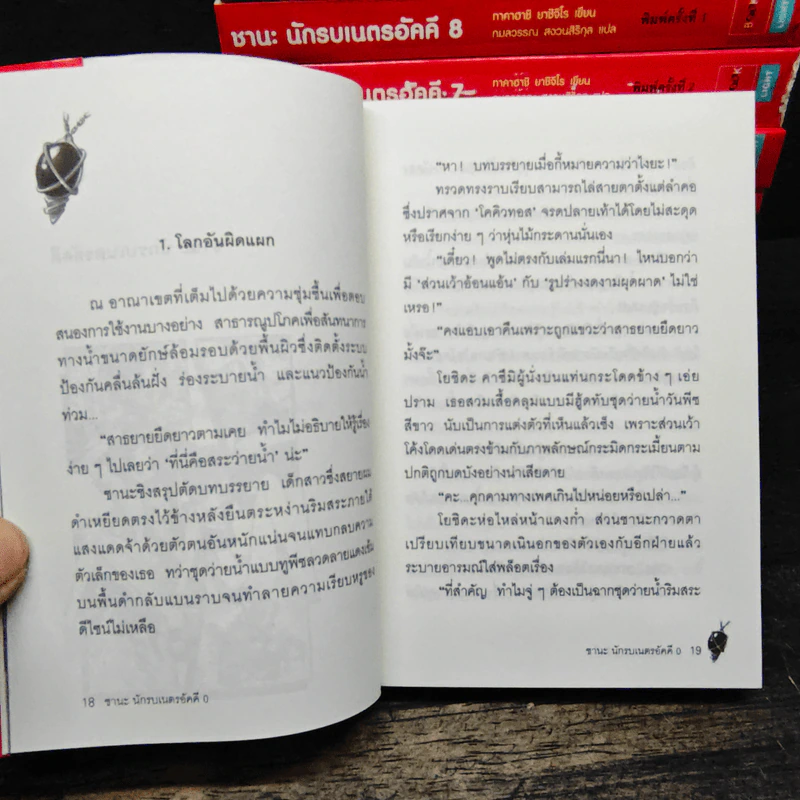 ชานะ นักรบเนตรอัคคี 8
ทาคาฮาชิ ยาชิจิโร เขียน
กมลวรรณ สงวนสิริกุล แปล
พิมพ์ครั้งที่ 1
LIGHT
เนตรอัคคี 7
ทาคาฮาชิ ยาชิจิโร เขียน
พิมพ์ครั้งที่ 2
LIGHT
1. โลกอันผิดแผก
ณ อาณาเขตที่เต็มไปด้วยความชุ่มชื้นเพื่อตอบ
สนองการใช้งานบางอย่าง สาธารณูปโภคเพื่อสันทนาการ
ทางน้ำขนาดยักษ์ล้อมรอบด้วยพื้นผิวซึ่งติดตั้งระบบ
ป้องกันคลื่นล้นฝั่ง ร่องระบายน้ำ และแนวป้องกันน้ำ
ท่วม...
“สาธยายยืดยาวตามเคย ทำไมไม่อธิบายให้รู้เรื่อง
ง่าย ๆ ไปเลยว่า ‘ที่นี่คือสระว่ายน้ำ’ น่ะ”
ชานะชิงสรุปตัดบทบรรยาย เด็กสาวซึ่งสยายผม
ดำเหยียดตรงไว้ข้างหลังยืนตระหง่านริมสระภายใต้
แสงแดดจ้าด้วยตัวตนอันหนักแน่นจนแทบกลบความ
ตัวเล็กของเธอ ทว่าชุดว่ายน้ำแบบทูพีซลวดลายแดงเข้ม
บนพื้นดำกลับแบนราบจนทำลายความเรียบหรูของ
ดีไซน์ไม่เหลือ
18 ชานะ นักรบเนตรอัคคี 0
“หา! บทบรรยายเมื่อกี้หมายความว่าไงยะ!”
ทรวดทรงราบเรียบสามารถไล่สายตาตั้งแต่ลำคอ
ซึ่งปราศจาก ‘โคคิวทอส’ จรดปลายเท้าได้โดยไม่สะดุด
หรือเรียกง่าย ๆ ว่าหุ่นไม้กระดานนั่นเอง
“เดี๋ยว! พูดไม่ตรงกับเล่มแรกนี่นา! ไหนบอกว่า
มี ‘ส่วนเว้าอ้อนแอ้น’ กับ ‘รูปร่างงดงามผุดผาด’ ไม่ใช่
เหรอ!”
“คงแอบเอาคืนเพราะถูกแขวะว่าสาธยายยืดยาว
มั้งจ๊ะ”
โยชิดะ คาซึมิผู้นั่งบนแท่นกระโดดข้าง ๆ เอ่ย
ปราม เธอสวมเสื้อคลุมแบบมีฮู้ดทับชุดว่ายน้ำวันพีซ
สีขาว นับเป็นการแต่งตัวที่เห็นแล้วเซ็ง เพราะส่วนเว้า
โค้งโดดเด่นตรงข้ามกับภาพลักษณ์กระมิดกระเมี้ยนตาม
ปกติถูกบดบังอย่างน่าเสียดาย
“คะ...คุกคามทางเพศเกินไปหน่อยหรือเปล่า...”
โยชิดะห่อไหล่หน้าแดงก่ำ ส่วนชานะกวาดตา
เปรียบเทียบขนาดเนินอกของตัวเองกับอีกฝ่ายแล้ว
ระบายอารมณ์ใส่พล็อตเรื่อง
“ที่สำคัญ ทำไมจู่ ๆ ต้องเป็นฉากชุดว่ายน้ำริมสระ
ชานะ นักรบเนตรอัคคี 0 19